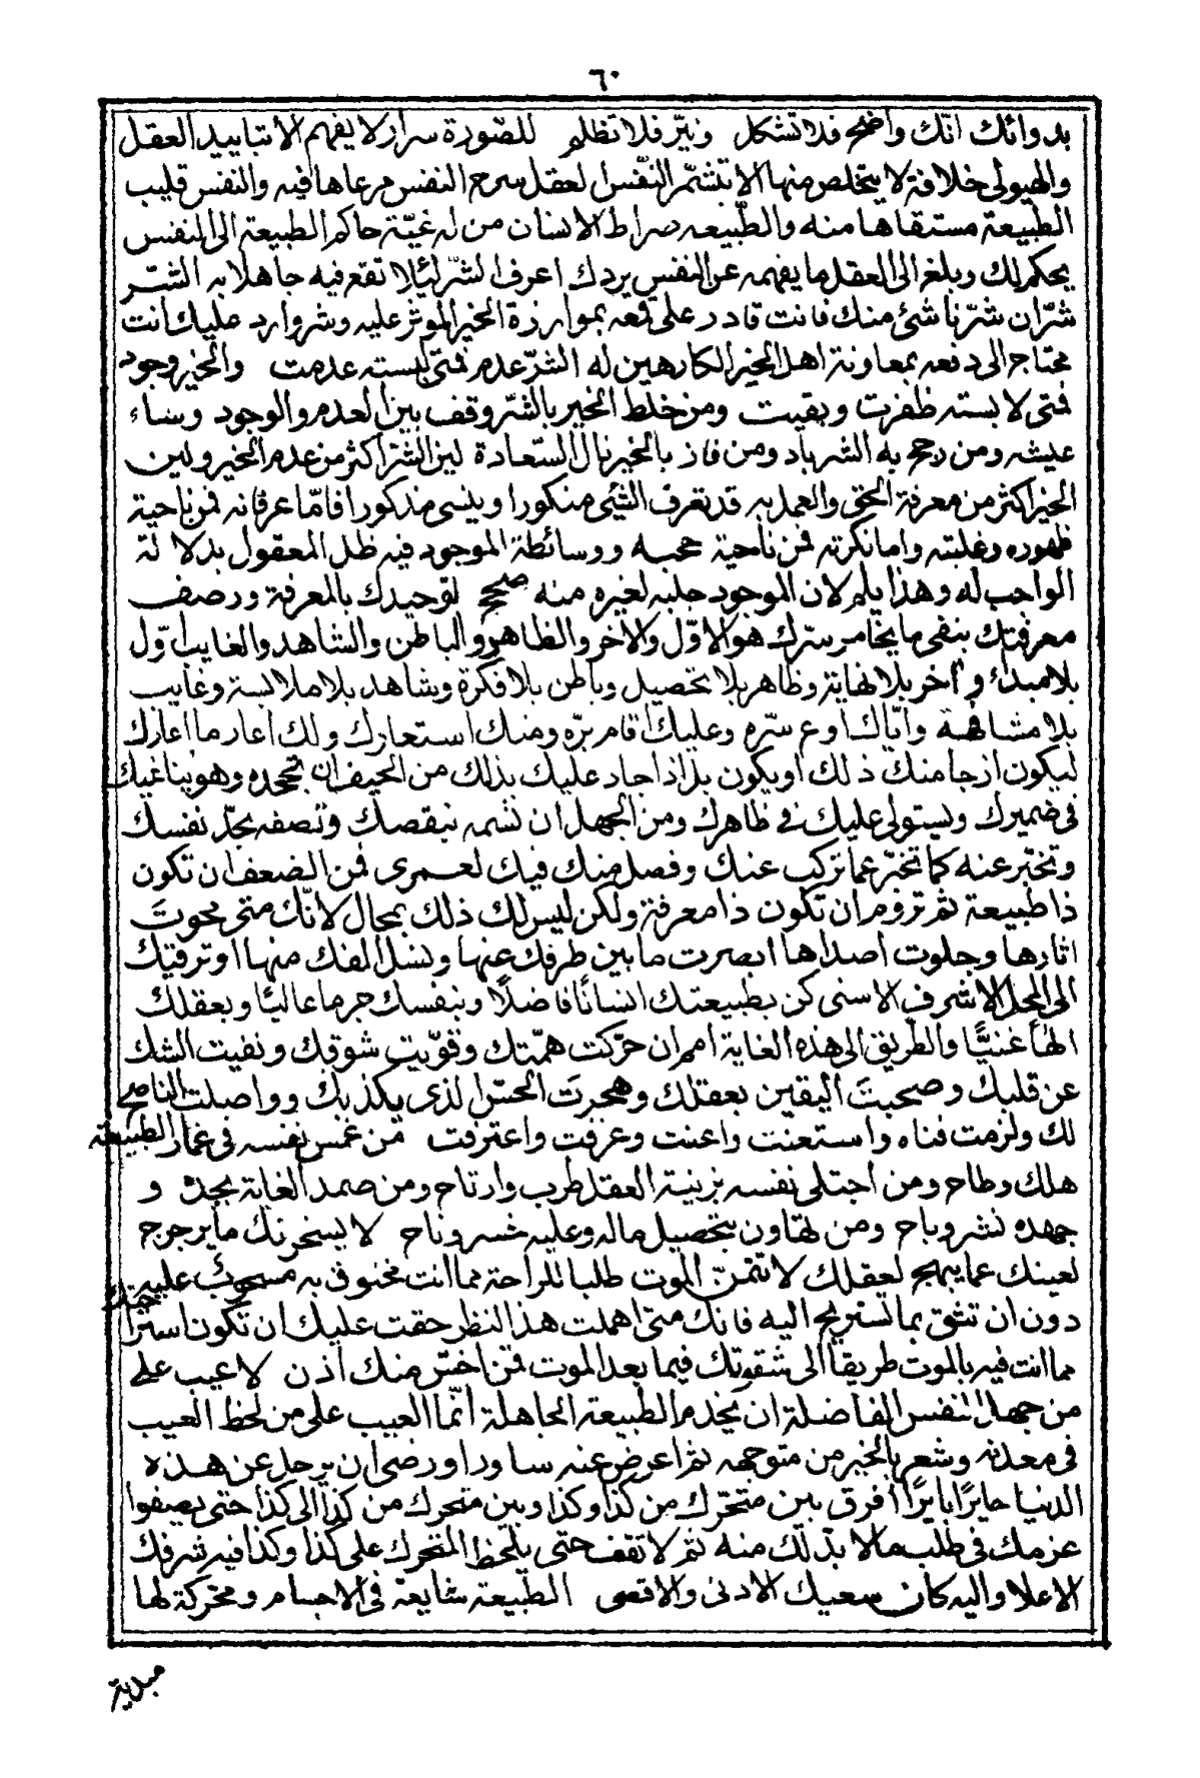 ٦٠
بدوائك انّك واضح فلا تشكل ونيّر فلا تظلم للصّورة سرار لا يفهم الا بتاييد العقل
والهيولى خلافة لا يتخلص منها الا بتشمّر النّفس العقل سرح النفس مرعاها فيه والنفس قليب
الطبيعة مستقاها منه والطّبيعه صراط الانسان من له غيّة حاكم الطبيعة الى النفس
يحكم لك وبلغ الى العقل ما يفهمه عن النفس يردك اعرف الشّر لئلا تقع فيه جاهلا به الشّر
شرّان شرّ ناشئ منك فانت قادر على دفعه بموارزة الخير الموثر عليه وشر وارد عليك انت
محتاج الى دفعه بمعاونة اهل الخير الكارهين له الشرّ عدم فمتى لبسته عدمت والخير وجود
فمتى لابسته ظفرت وبقيت ومن خلط الخير بالشّر وقف بين العدم والوجود وساء
عيشه ومن رجح به الشر باد ومن فاز بالخير نال السّعادة ليس الشّر اكثر من عدم الخير وليس
الخير اكثر من معرفة الحق والعمل به قد تعرف الشئ منكورا وينسى مذكورا فامّا عرفانه فمن ناحية
ظهوره وغلبته واما نكرته فمن ناحية حجبه ووسائطة الموجود فيه ظل المعقول بدلالة
الواجب له وهذا يلم لان الموجود جلبه لغيره منه صحح لتوحيدك بالمعرفة ورصف
معرفتك بنفى ما يخامر سرّك هو الاوّل والآخر والظاهر والباطن والشاهد والغايب اوّل
بلا مبدئ وآخر بلا نهاية وظاهر بلا تحصيل وباطن بلا فكرة وشاهد بلا ملابسة وغايب
بلا مشافهة وايّاك اوع سرّه وعليك اقام برّه ومنك استعارك ولك اعار ما اعارك
ليكون ازجا منك ذلك اويكون بذ اذا جاد عليك بذلك من الحيف ان تجحده وهو يناغيك
فى ضميرك ويستولى عليك فى ظاهرك ومن الجهل ان تسمه بنقصك وتصفه بحدّ نفسك
وتخبّر عنه كما تخبّر عما تركب عنك وفصل منك فيك لعمرى فمن الضعف ان تكون
ذا طبيعة ثم تروم ان تكون ذا معرفة ولكن ليس لك ذلك بمحال لانّك متى محوتَ
اثارها وجلوت اصداها ابصرت ما بين طرفك عنها وتسل الفك منها او ترقيتك
الى المحل الاشرف الاسنى كن بطبيعتك انسانًا فاضلًا وبنفسك جرما عاليًا وبعقلك
الهًا غنيًّا والطّريق الى هذه الغاية امم ان حرّكت همّتك وقوّيت شوقك ونفيت الشك
عن قلبك وصحبتَ اليقين بعقلك وهجرتَ الحسّ الذى يكذبك وواصلت الناصح
لك ولزمت فناه واستعنت واعنت وعرفت واعترفت من غمس نفسه فى غمار الطبيعة
هلك وطاح ومن اجتلى نفسه بزينة العقل طرب وارتاح ومن صمد الغاية بجدّه و
جهده نشر وباح ومن تهاون بتحصيل ماله وعليه خسر وناح لا يسخرنك ما يرجرج
لعينك عما يبهج لعقلك لا تتمنّ الموت طلبا للراحة مما انت مخنوق به مسحوب عليه
دون ان تثق بما تستريح اليه فانك متى اهملت هذا النظر حقت عليك ان تكون استراحتك
مما انت فيه بالموت طريقا الى شقوتك فيما بعد الموت فمن اخسّ منك اذن لا عيب على
من جهل النفس الفاضلة ان يخدم الطبيعة الجاهلة انّما العيب على من لحظ العيب
فى معدنه وشعر بالخير من متوجهه ثم اعرض عنه سادرا ورضى ان يرحل عن هذه
الدنيا حايرًا بايرًا افرق بين متحرّك من كذا وكذا وبين متحرك من كذا الى كذا حتى يصفوا
عزمك فى طلب مالا بدّ لك منه ثم لا تقف حتى يلحظ المتحرك على كذا وكذا فيه شرفك
الاعلا واليه كان سعيك الادنى والاقصى الطّبيعة شايعة فى الاجسام ومحركة لها